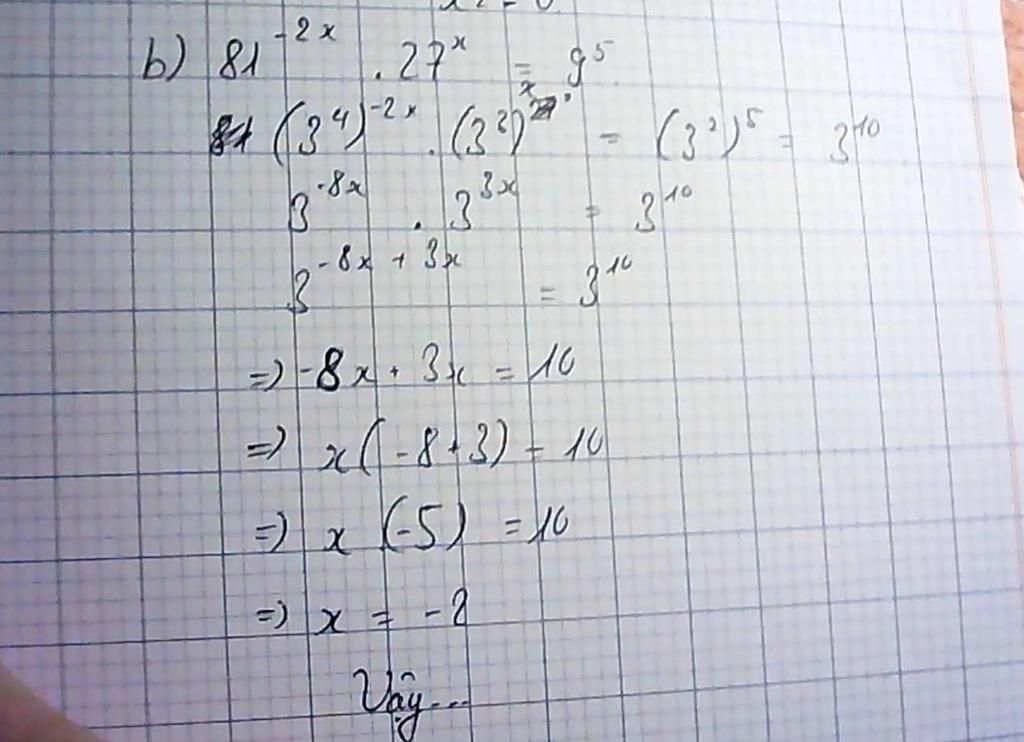 b) 81^{-2x} . 27^x = 9^5
(3^4)^{-2x} . (3^3)^x = (3^2)^5 = 3^{10}
3^{-8x} . 3^{3x} = 3^{10}
3^{-8x + 3x} = 3^{10}
=> -8x + 3x = 10
=> x(-8+3) = 10
=> x (-5) = 10
=> x = -2
Vậy...